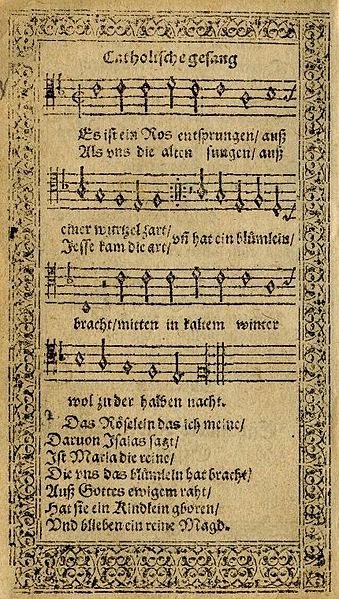 Catholische gesang
Es ist ein Ros entsprungen/ auß
Als vns die alten sungen/ auß
einer wurtzel zart/
Jesse kam die art/
vñ hat ein blümlein/
bracht/mitten in kaltem winter
wol zu der halben nacht.
2.
Das Röselein das ich meine/
Daruon Isaias sagt/
Ist Maria die reine/
Die vns das blümlein hat bracht/
Auß Gottes ewigem raht/
Hat sie ein Kindlein gboren/
Vnd blieben ein reine Magd.